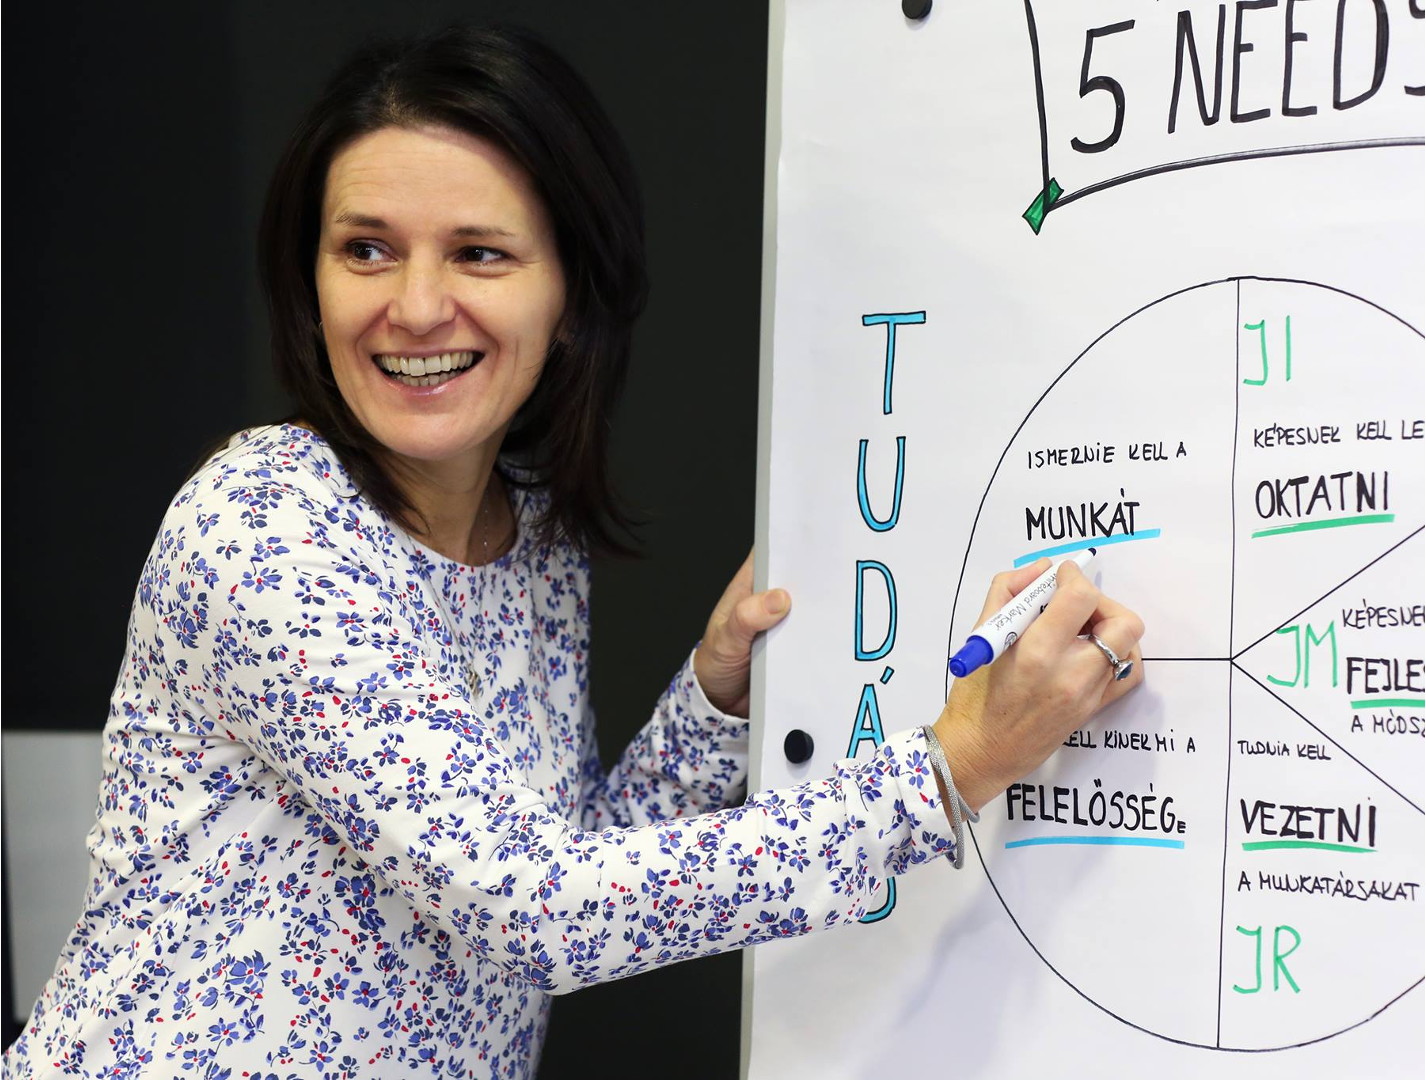 5 NEEDS
TUDÁ
JI
ISMERNIE KELL A
MUNKÁT
KÉPESNEK KELL LE
OKTATNI
JM
KÉPESNE
FEJLES
A MÓDSZ
KELL KINEK MI A
FELELŐSSÉGE
TUDNIA KELL
VEZETNI
A MUNKATÁRSAKAT
JR
Whiteboard Marker